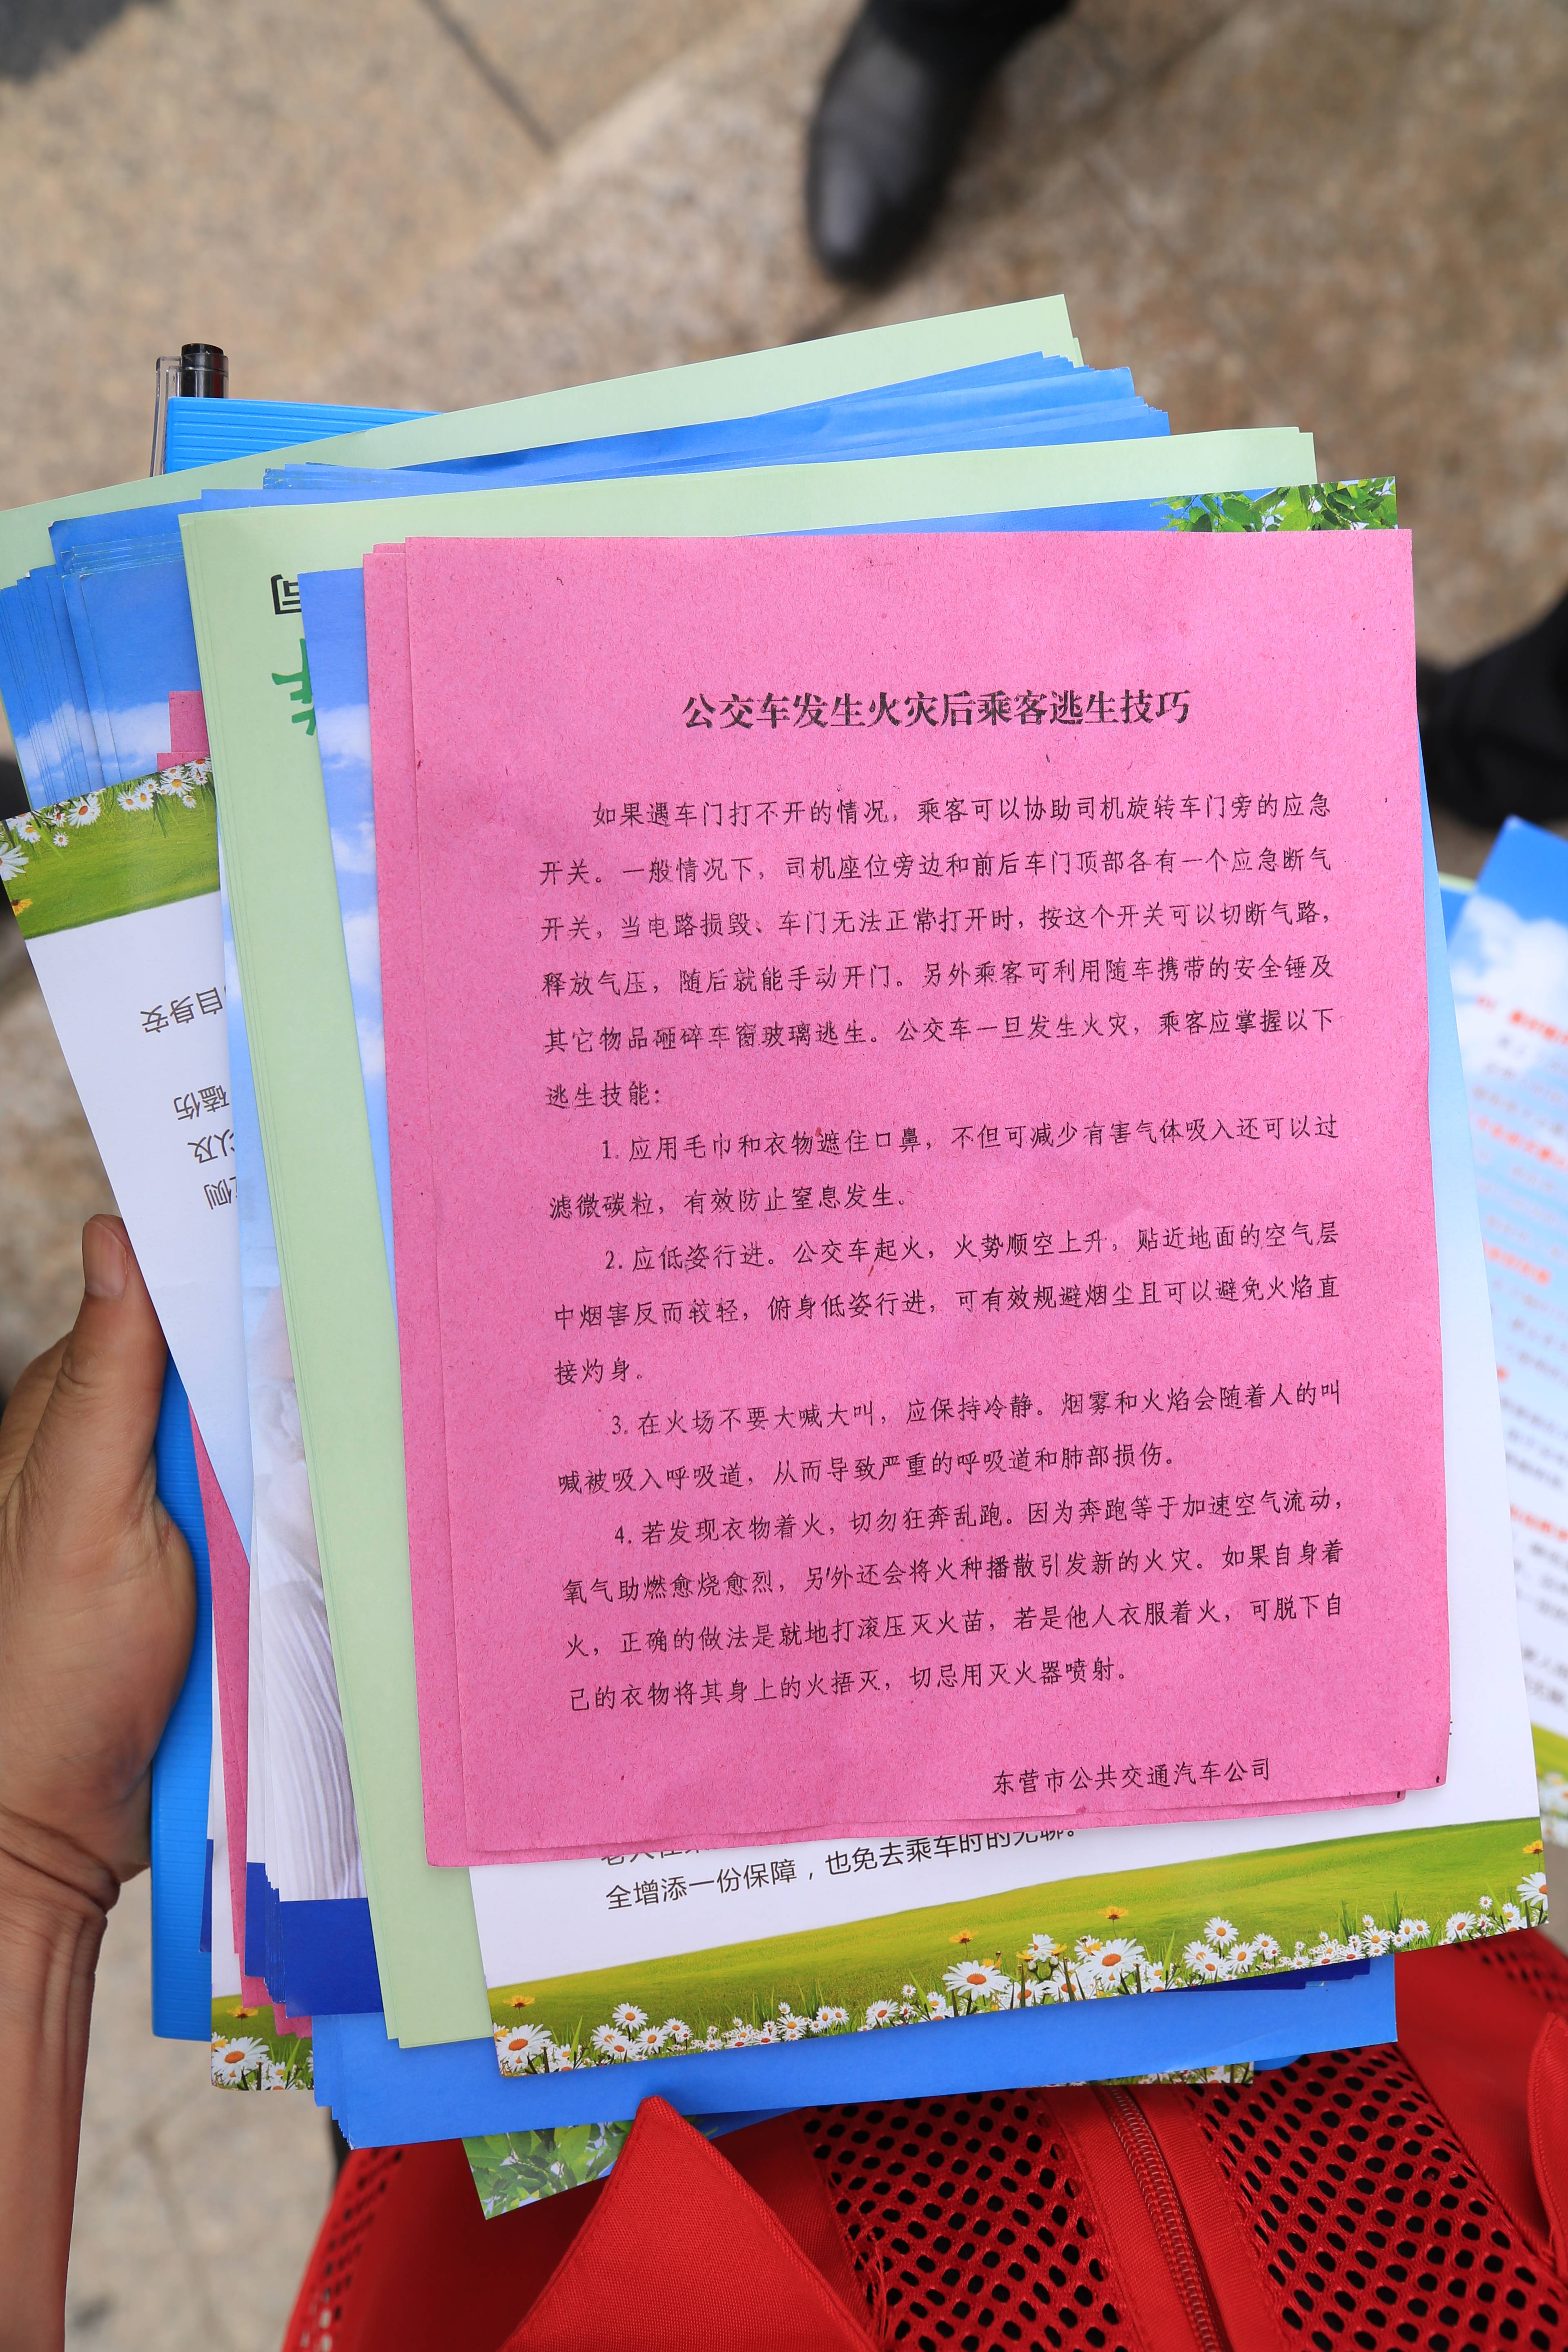 公交车发生火灾后乘客逃生技巧
如果遇车门打不开的情况，乘客可以协助司机旋转车门旁的应急
开关。一般情况下，司机座位旁边和前后车门顶部各有一个应急断气
开关，当电路损毁、车门无法正常打开时，按这个开关可以切断气路，
释放气压，随后就能手动开门。另外乘客可利用随车携带的安全锤及
其它物品砸碎车窗玻璃逃生。公交车一旦发生火灾，乘客应掌握以下
逃生技能：
1.应用毛巾和衣物遮住口鼻，不但可减少有害气体吸入还可以过
滤微碳粒，有效防止窒息发生。
2.应低姿行进。公交车起火，火势顺空上升，贴近地面的空气层
中烟害反而较轻，俯身低姿行进，可有效规避烟尘且可以避免火焰直
接灼身。
3.在火场不要大喊大叫，应保持冷静。烟雾和火焰会随着人的叫
喊被吸入呼吸道，从而导致严重的呼吸道和肺部损伤。
4.若发现衣物着火，切勿狂奔乱跑。因为奔跑等于加速空气流动，
氧气助燃愈烧愈烈，另外还会将火种播散引发新的火灾。如果自身着
火，正确的做法是就地打滚压灭火苗，若是他人衣服着火，可脱下自
己的衣物将其身上的火捂灭，切忌用灭火器喷射。
东营市公共交通汽车公司
全增添一份保障，也免去乘车时的无聊。
自身安
磕伤
以及
侧